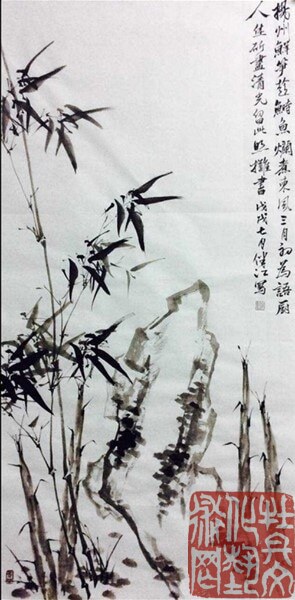 揚州鮮笋趁鰣魚爛煮東風三月初為語厨
人休斫盡清光留此照攤書 戊戌七月江寫